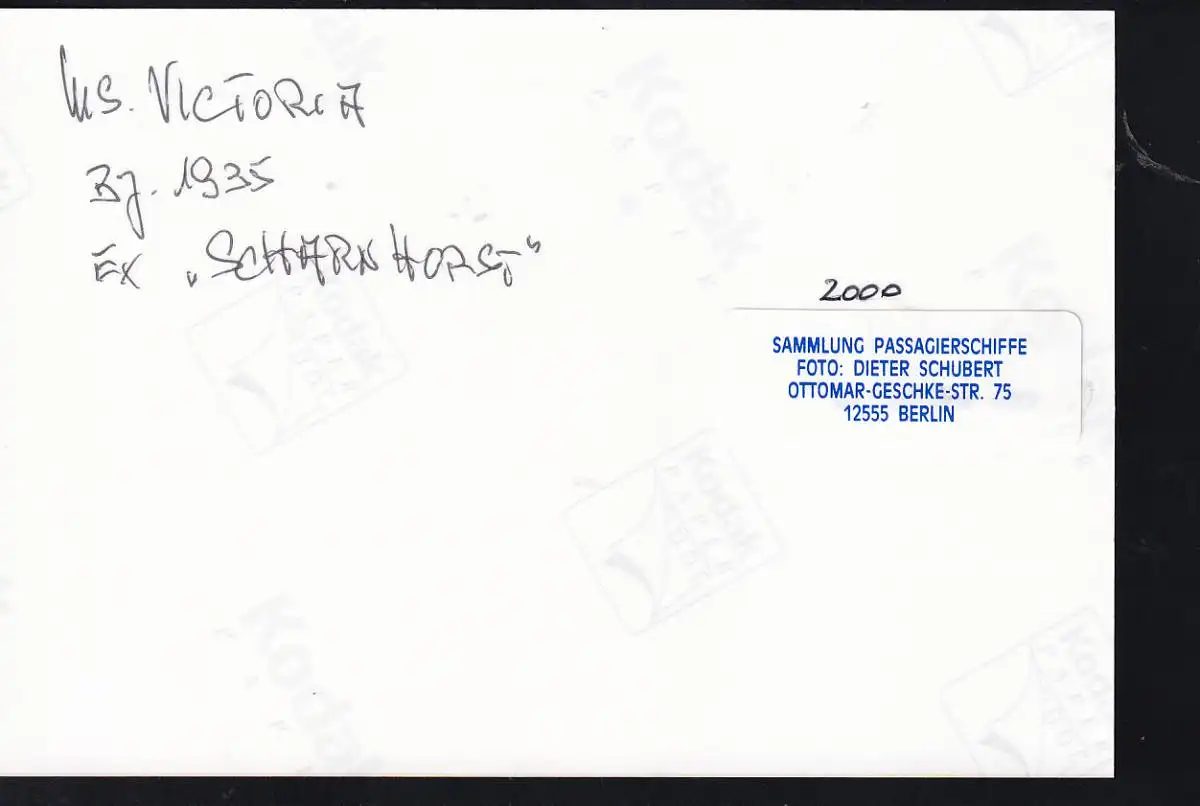 MS. VICTORIA
Bj. 1935
EX „SCHARNHORST“
2000
SAMMLUNG PASSAGIERSCHIFFE
FOTO: DIETER SCHUBERT
OTTOMAR-GESCHKE-STR. 75
12555 BERLIN
Kodak
Kodak
Kodak
Kodak
Kodak